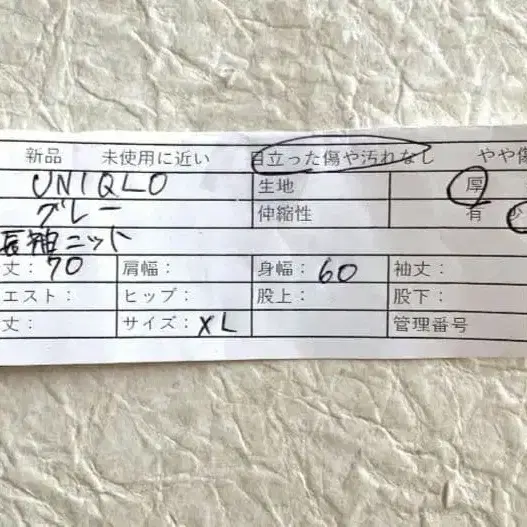 新品 未使用に近い 目立った傷や汚れなし やや傷
UNIQLO 生地 厚
グレー 伸縮性 有 少
長袖ニット
丈：70 肩幅： 身幅：60 袖丈：
エスト： ヒップ： 股上： 股下：
丈： サイズ：XL 管理番号